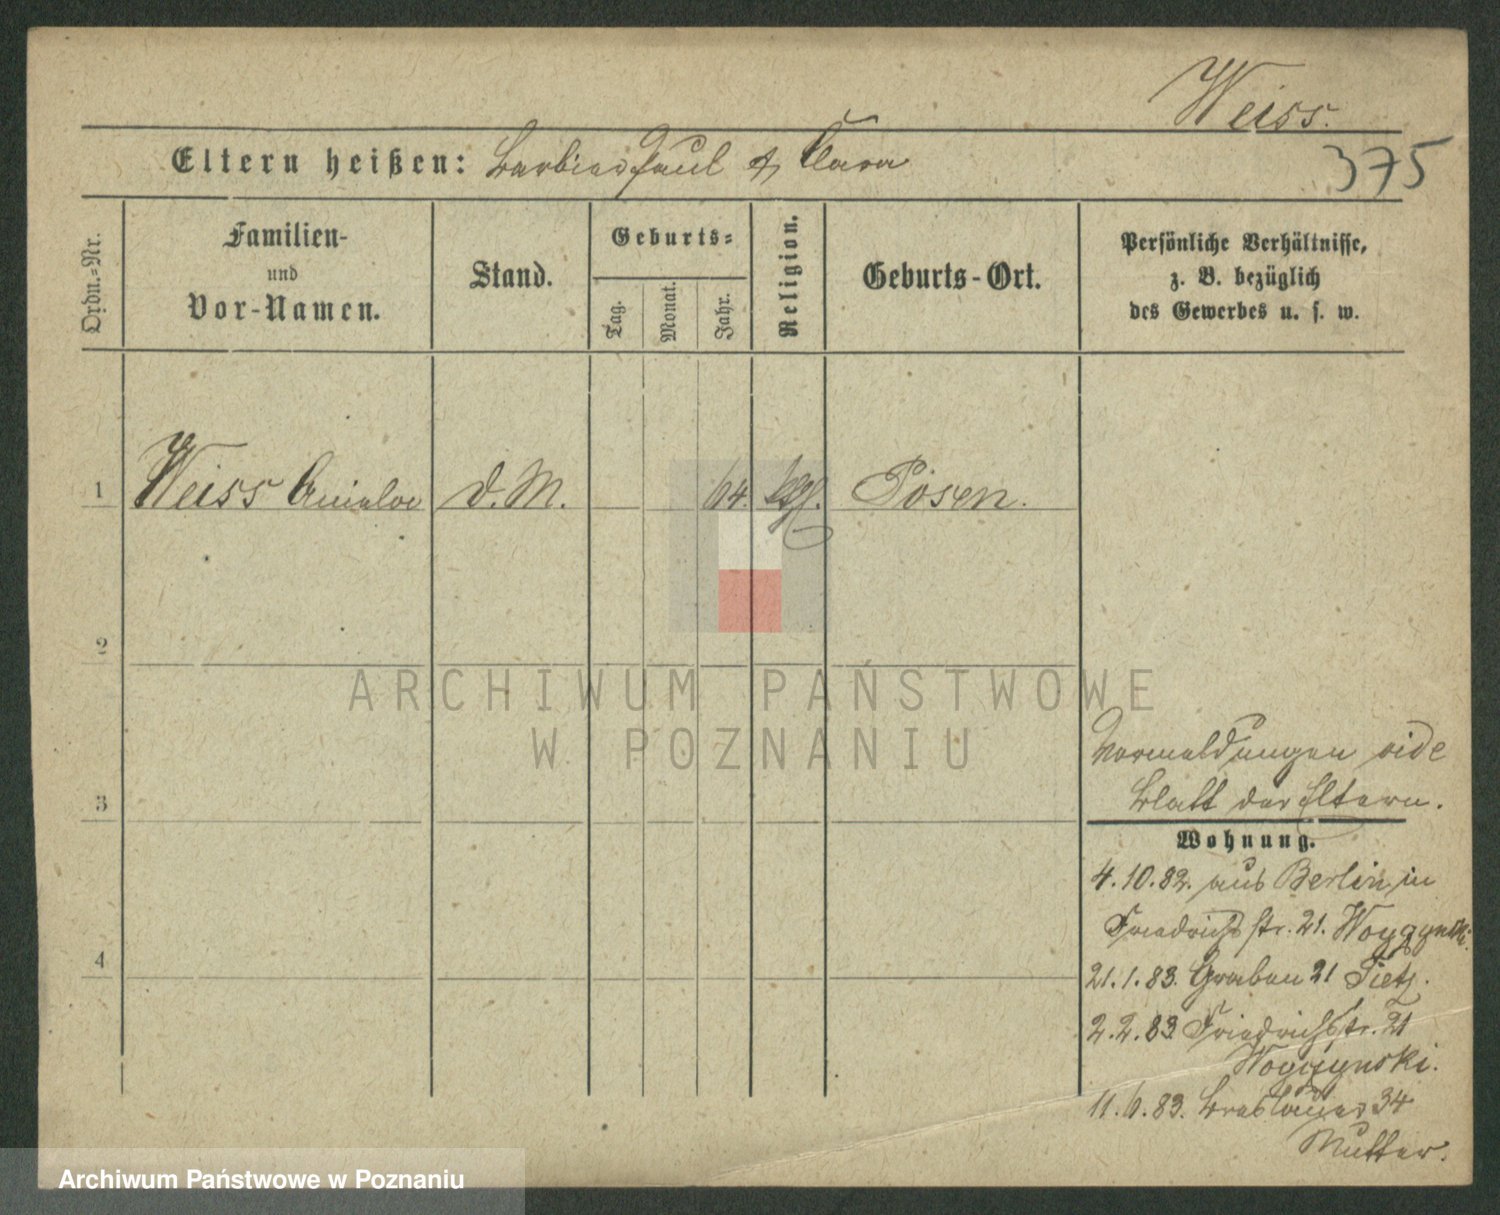 Weiss.
375
Eltern heißen: Barbier Paul & Clara
Ordn.-Nr.
Familien-
und
Vor-Namen.
Stand.
Geburts-
Tag.
Monat.
Jahr.
Religion.
Geburts-Ort.
Persönliche Verhältnisse,
z. B. bezüglich
des Gewerbes u. s. w.
1 Weiss d. M. 64. Posen.
2
3
4
Vormeldungen vide
Blatt der Eltern.
Wohnung.
4.10.82. aus Berlin in
Friedrichstr. 21.
21.1.83. Graben 21 Tietz.
2.2.83 Friedrichstr. 21
11.6.83. Breslauer 34
Mutter.
ARCHIWUM PAŃSTWOWE
W POZNANIU
Archiwum Państwowe w Poznaniu